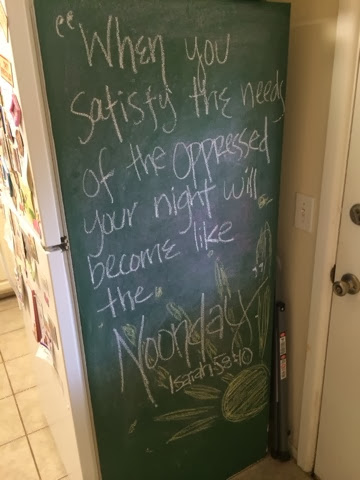 "When you
satisfy the needs
of the oppressed
your night will
become like
the
Noonday."
Isaiah 58:10